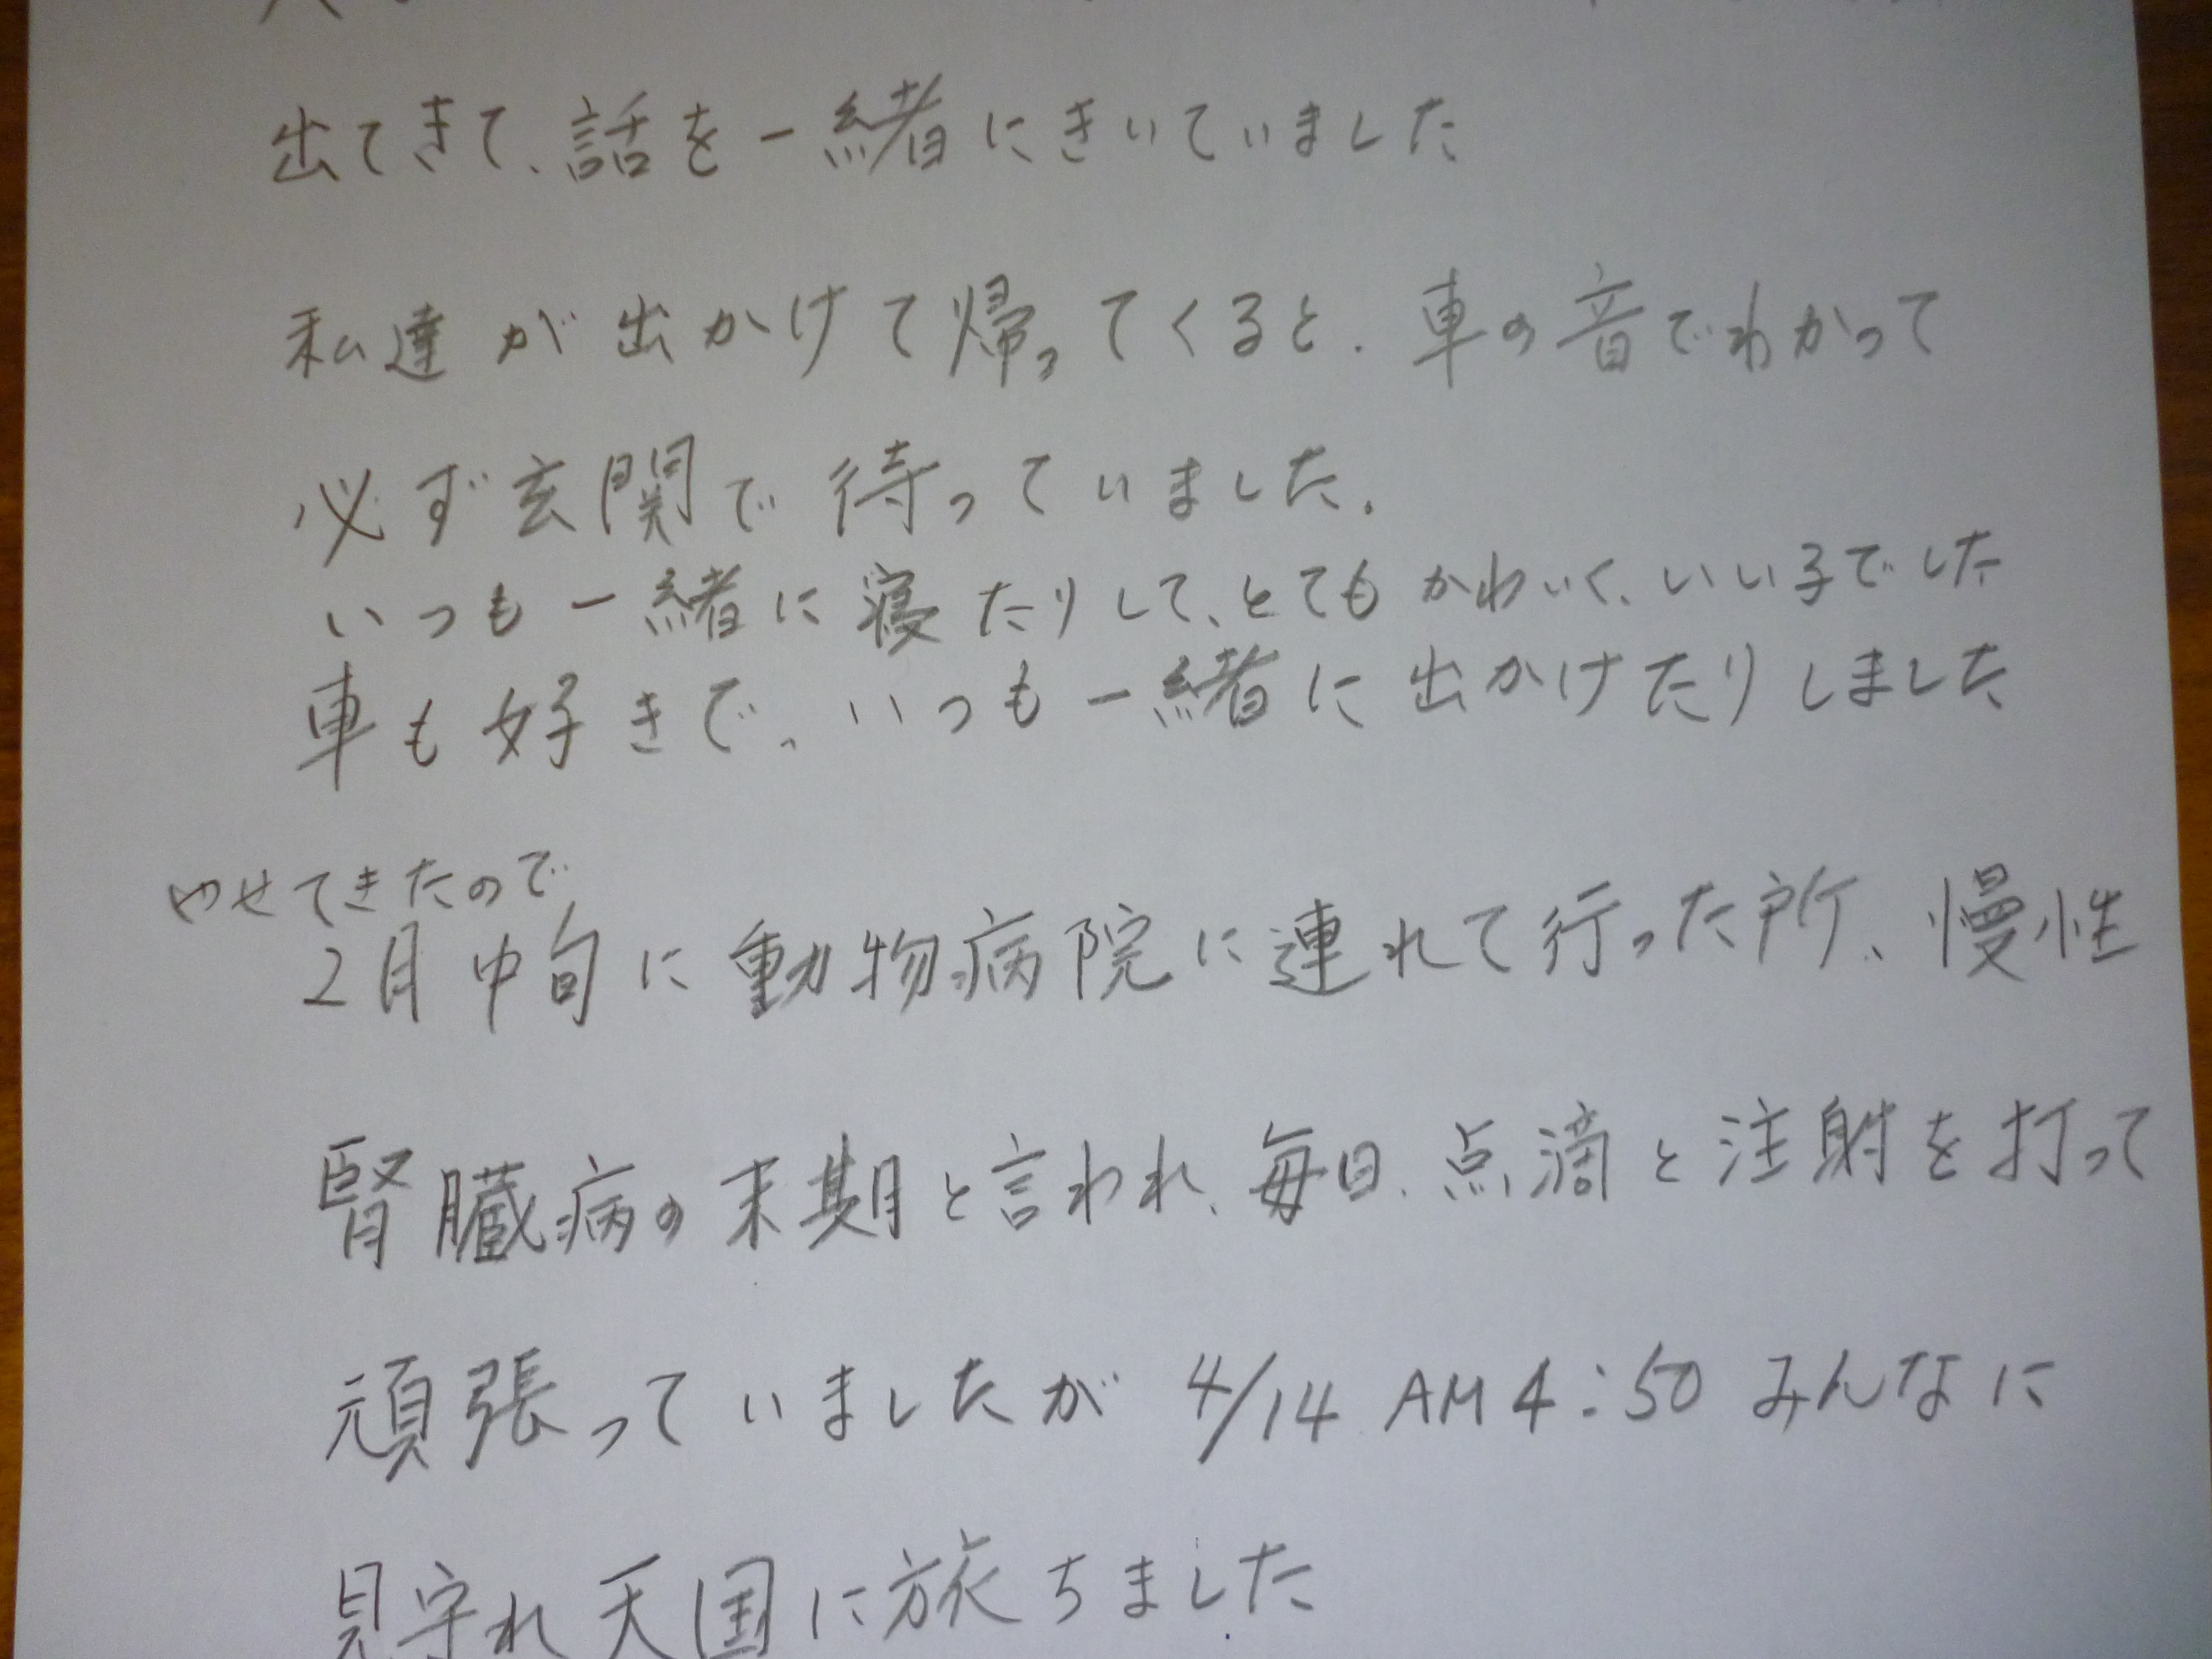 出てきて、話を一緒にきいていました
私達が出かけて帰ってくると、車の音でわかって
必ず玄関で待っていました。
いつも一緒に寝たりして、とてもかわいく、いい子でした
車も好きで、いつも一緒に出かけたりしました
やせてきたので
2月中旬に動物病院に連れて行った所、慢性
腎臓病の末期と言われ、毎日、点滴と注射を打って
頑張っていましたが 4/14 AM4:50 みんなに
見守れ天国に旅ちました